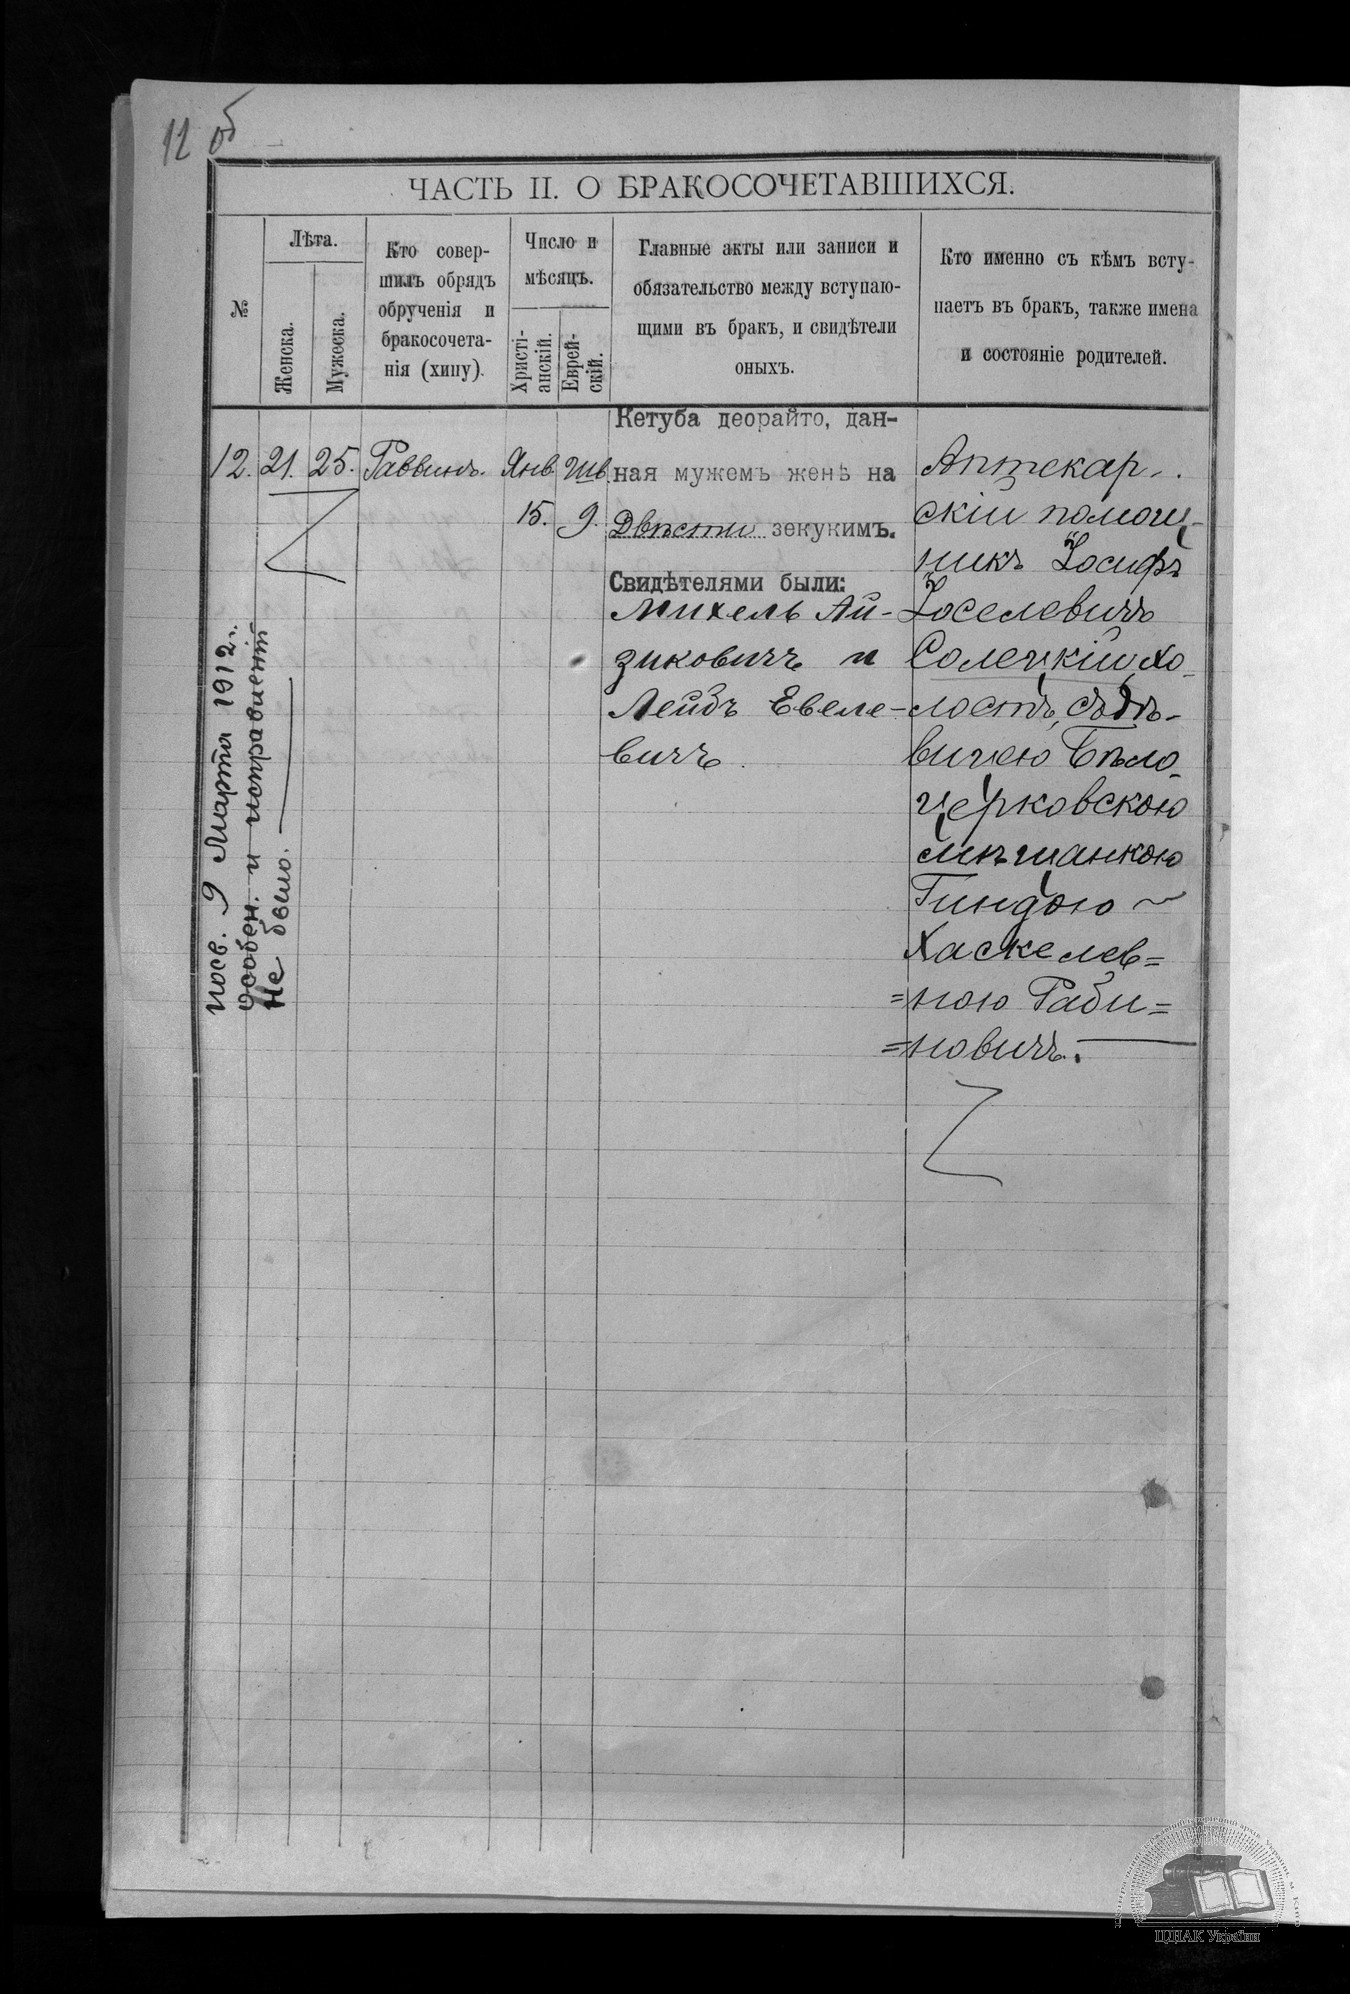 12 об
ЧАСТЬ II. О БРАКОСОЧЕТАВШИХСЯ.
№
Лѣта.
Женска.
Мужеска.
Кто совер-
шилъ обрядъ
обрученія и
бракосочета-
нія (хипу).
Число и
мѣсяцъ.
Христі-
анскій.
Еврей-
скій.
Главные акты или записи и
обязательство между вступаю-
щими въ бракъ, и свидѣтели
оныхъ.
Кто именно съ кѣмъ всту-
паетъ въ бракъ, также имена
и состояніе родителей.
12. 21. 25. Раввинъ. Янв Шв.
15. 9.
Кетуба деорайто, дан-
ная мужемъ женѣ на
Двѣсти зекукимъ.
Свидѣтелями были:
Михель Ай-
зиковичъ и
Лейбъ Евеле-
вичъ.
Аптекар-
скій помощ-
никъ Іосифъ
Іоселевичъ
Солецкій, хо-
лостъ, съ дѣ-
вицею Бѣло-
церковскою
мѣщанкою
Гиндою ~
Хаскелев=
=ною Раби=
=новичъ.
посв. 9 Марта 1912 г.
особен. и исправленій
не было.
ЦДІАК України